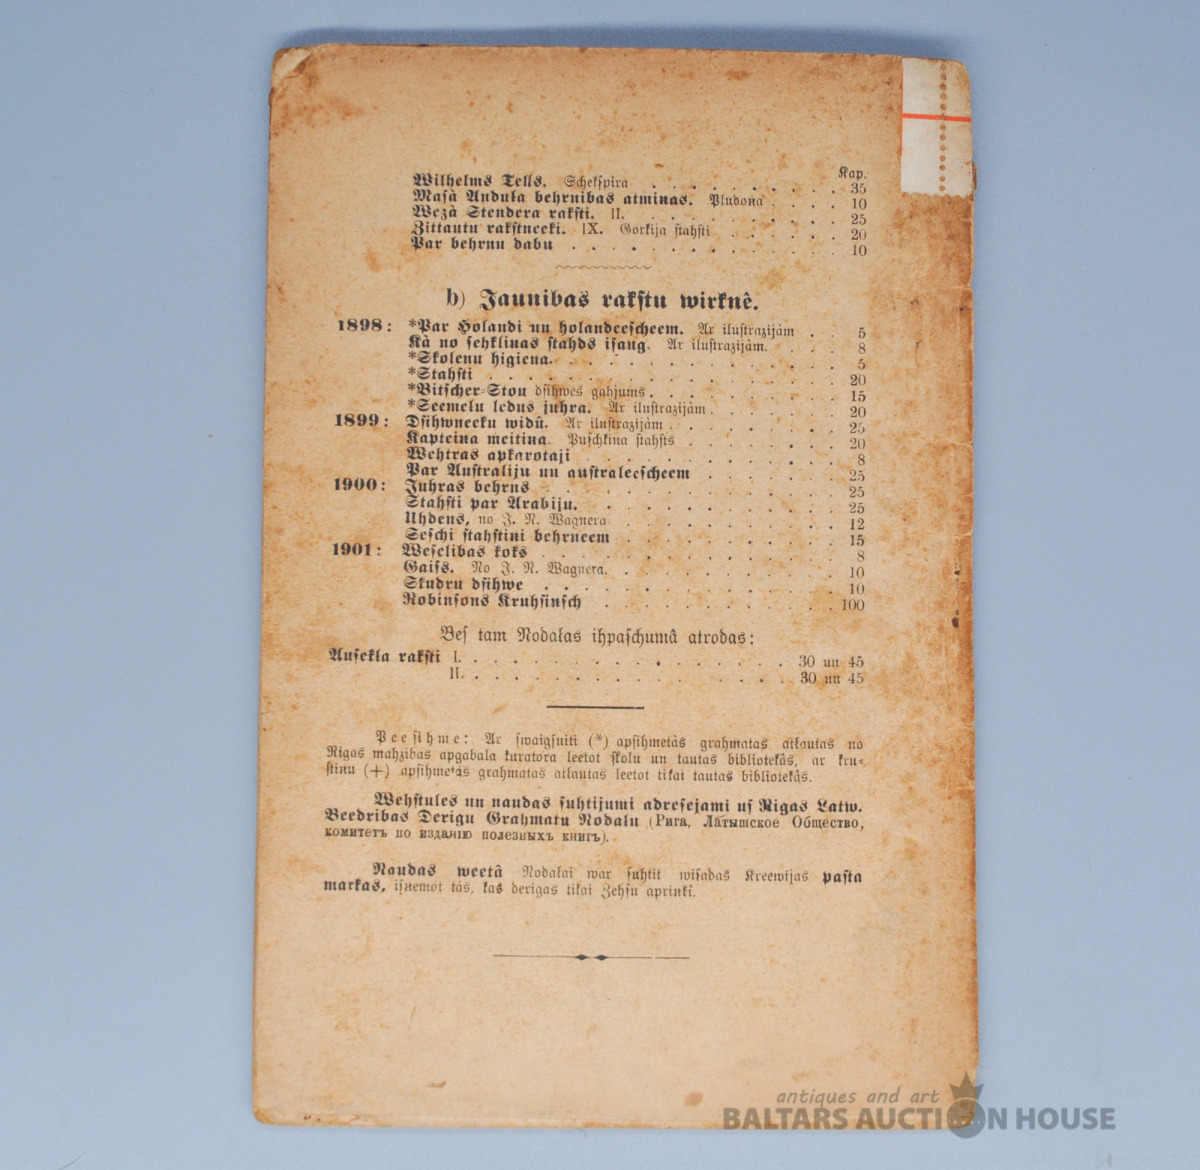 Kap.
Wilhelms Tells. Schekſpira . . . . . . . . . . 35
Maſà Anduła behrnibas atmiņas. Pludoņa . . . . 10
Wezà Stendera rakſti. II. . . . . . . . . . . 25
Zittautu rakſtneeki. IX. Gorkija ſtahſti . . . . . . 20
Par behrnu dabu . . . . . . . . . . . . . 10
b) Jaunibas rakſtu wirknê.
1898: *Par Holandi un holandeeſcheem. Ar iluſtrazijàm . . 5
Kà no ſehkliņas ſtahds iſaug. Ar iluſtrazijàm. . . . 8
*Skolenu higiena. . . . . . . . . . . . . . 5
*Stahſti . . . . . . . . . . . . . . . . 20
*Bitſcher-Stou dſihwes gahjums. . . . . . . . . 15
*Seemeļu ledus juhra. Ar iluſtrazijàm . . . . . . 20
1899: Dſihwneeku widû. Ar iluſtrazijàm . . . . . . . . 25
Kapteiņa meitiņa. Puſchkina ſtahſts . . . . . . . 20
Wehtras apkarotaji . . . . . . . . . . . . 8
Par Auſtraliju un auſtraleeſcheem . . . . . . . 25
1900: Juhras behrns . . . . . . . . . . . . . . 25
Stahſti par Arabiju. . . . . . . . . . . . . 25
Uhdens, no J. N. Wagnera . . . . . . . . . . 12
Seſchi ſtahſtiņi behrneem . . . . . . . . . . 15
1901: Weſelibas koks . . . . . . . . . . . . . . 8
Gaiſs. No J. N. Wagnera. . . . . . . . . . . 10
Skudru dſihwe . . . . . . . . . . . . . . 10
Robinſons Kruhſiņſch . . . . . . . . . . . 100
Beſ tam Nodaļas ihpaſchumâ atrodas:
Auſekļa rakſti I. . . . . . . . . . . . . . 30 un 45
II. . . . . . . . . . . . . . 30 un 45
Peeſihme: Ar ſwaigſniti (*) apſihmetàs grahmatas atļautas no
Rigas mahzibas apgabala kuratora leetot ſkolu un tautas bibliotekâs, ar kru-
ſtiņu (+) apſihmetàs grahmatas atļautas leetot tikai tautas bibliotekâs.
Wehſtules un naudas ſuhtijumi adreſejami uſ Rigas Latw.
Beedribas Derigu Grahmatu Nodaļu (Рига, Латышское Общество,
комитетъ по изданію полезныхъ книгъ).
Naudas weetâ Nodaļai war ſuhtit wiſadas Kreewijas paſta
markas, iſņemot tàs, kas derigas tikai Zehſu apriņkî.
antiques and art
BALTARS AUCTION HOUSE